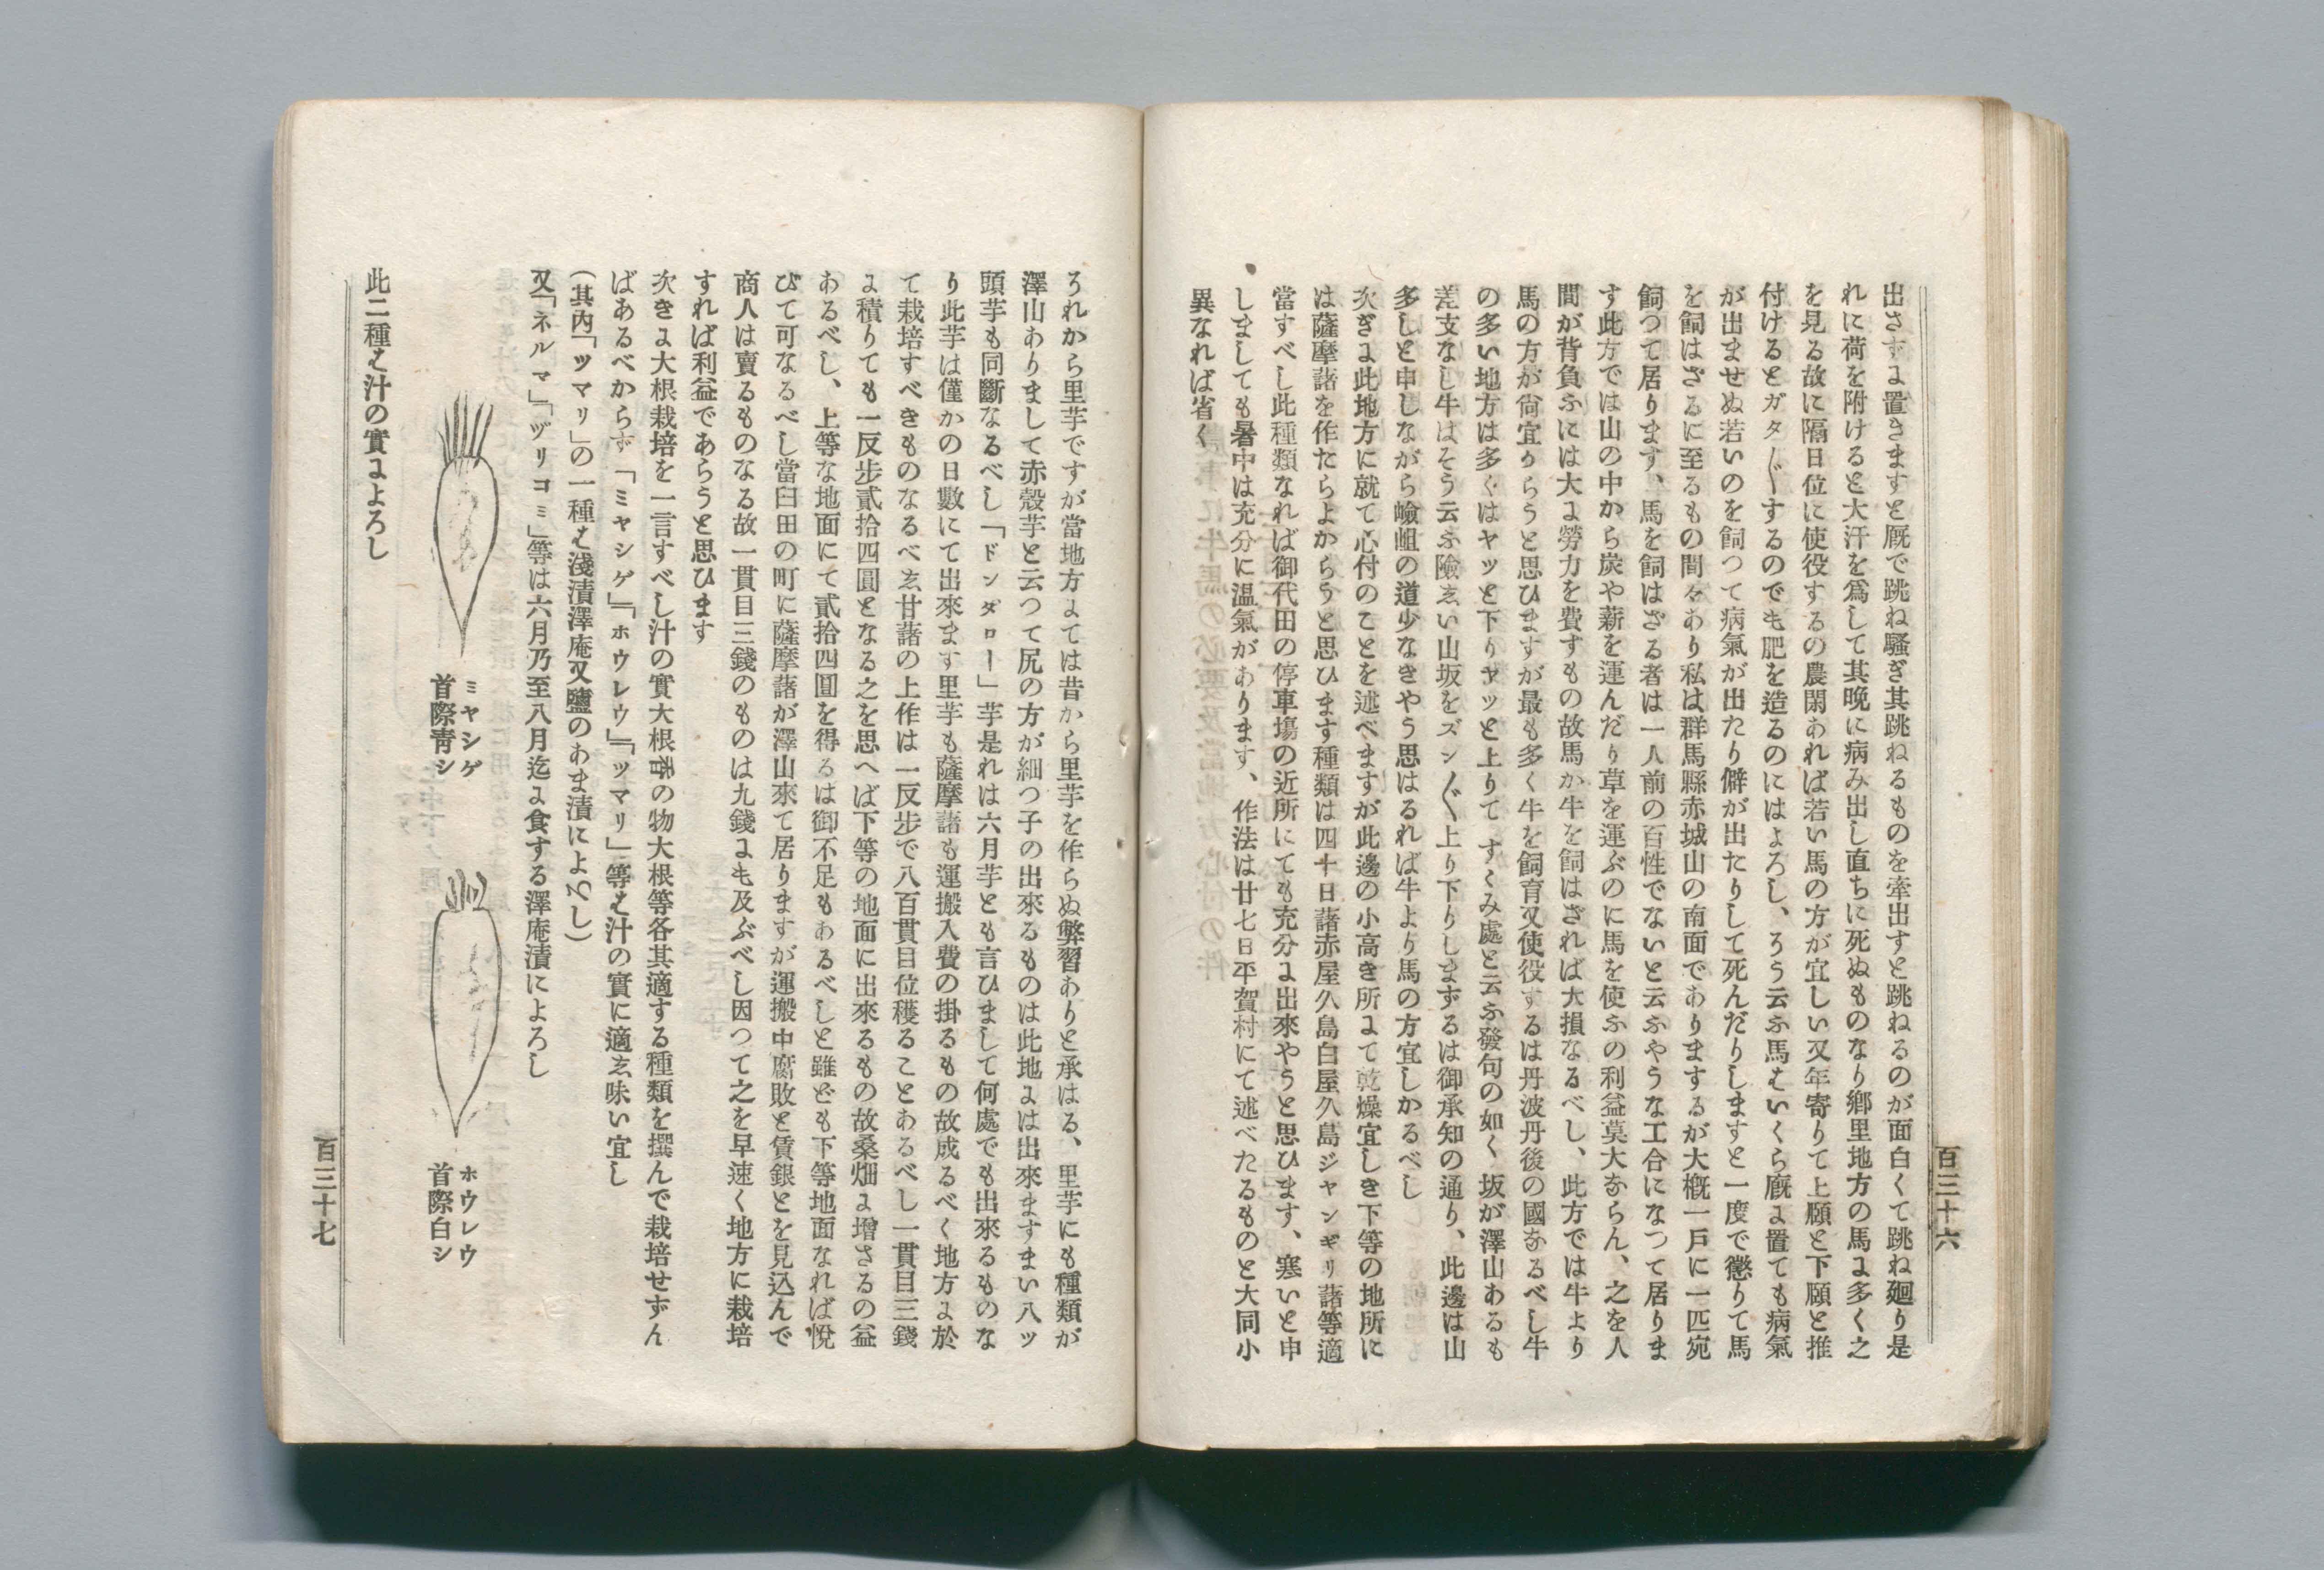 百三十六
出さずに置きますと厩で跳ね騒ぎ其跳ねるものを牽出すと跳ねるのが面白くて跳ね廻り是
れに荷を附けると大汗を爲して其晩に病み出し直ちに死ぬものなり鄉里地方の馬に多く之
を見る故に隔日位に使役するの農閑あれば若い馬の方が宜しい又年寄りて上願と下願と推
付けるとガタ〴〵するのでも肥を造るのにはよろし、ろう云ふ馬はいくら廐に置ても病氣
が出ませぬ若いのを飼つて病氣が出たり僻が出たりして死んだりしますと一度で懲りて馬
を飼はざるに至るもの間々あり私は群馬縣赤城山の南面でありまするが大槪一戸に一匹宛
飼つて居ります、馬を飼はざる者は一人前の百性でないと云ふやうな工合になつて居りま
す此方では山の中から炭や薪を運んだり草を運ぶのに馬を使ふの利益莫大ならん、之を人
間が背負ふには大に勞力を費すもの故馬か牛を飼はざれば大損なるべし、此方では牛より
馬の方が尙宜りらうと思ひますが最も多く牛を飼育又使役するは丹波丹後の國なるべし牛
の多い地方は多くはヤッと下りヤッと上りて すくみ處と云ふ發句の如く坂が澤山あるも
差支なし牛はそう云ふ險しい山坂をズン〴〵上り下りしまずるは御承知の通り、此邊は山
多しと申しながら嶮岨の道少なきやう思はるれば牛より馬の方宜しかるべし
次ぎに此地方に就て心付のことを述べますが此邊の小高き所にて乾燥宜しき下等の地所に
は薩摩藷を作たらよからうと思ひます種類は四十日藷赤屋久島白屋久島ジャンギリ藷等適
當すべし此種類なれば御代田の停車塲の近所にても充分に出來やうと思ひます、寒いと申
しましても暑中は充分に温氣があります、作法は廿七日平賀村にて述べたるものと大同小
異なれば省く
ろれから里芋ですが當地方にては昔から里芋を作らぬ弊習ありと承はる、里芋にも種類が
澤山ありまして赤殼芋と云つて尻の方が細つ子の出來るものは此地には出來ますまい八ッ
頭芋も同斷なるべし「ドンダロー」芋是れは六月芋とも言ひまして何處でも出來るものな
り此芋は僅かの日數にて出來ます里芋も薩摩藷も運搬入費の掛るもの故成るべく地方に於
て栽培すべきものなるべし甘藷の上作は一反步で八百貫目位穫ることあるべし一貫目三錢
に積りても一反步貳拾四圓となる之を思へば下等の地面に出來るもの故桑畑に增さるの益
あるべし、上等な地面にて貳拾四圓を得るは御不足もあるべしと雖ども下等地面なれば悅
びて可なるべし當臼田の町に薩摩藷が澤山來て居りますが運搬中腐敗と賃銀とを見込んで
商人は賣るものなる故一貫目三錢のものは九錢にも及ぶべし因つて之を早速く地方に栽培
すれば利益であらうと思ひます
次きに大根栽培を一言すべし汁の實大根煮の物大根等各其適する種類を撰んで栽培せずん
ばあるべからず「ミヤシゲ」「ホウレウ」「ツマリ」等は汁の實に適し味い宜し
(其內「ツマリ」の一種は淺漬澤庵又鹽のあま漬によろし)
又「ネルマ」「ヅリコミ」等は六月乃至八月迄に食する澤庵漬によろし
ミヤシゲ
首際靑シ
ホウレウ
首際白シ
此二種は汁の實によろし
百三十七